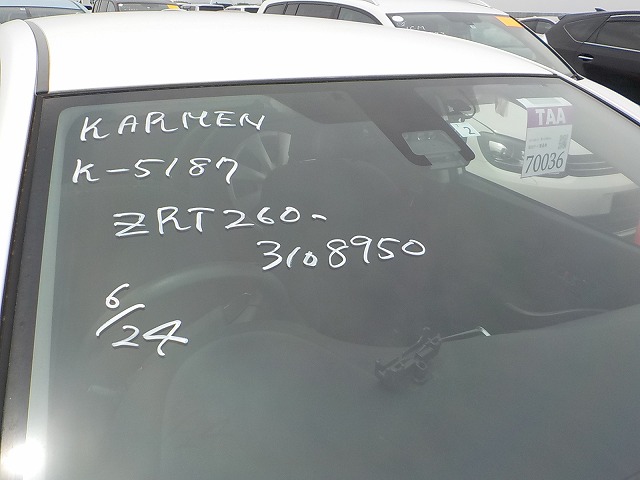 KARMEN
K-5187
ZRT260-
3108950
6/24
TAA
70036
2